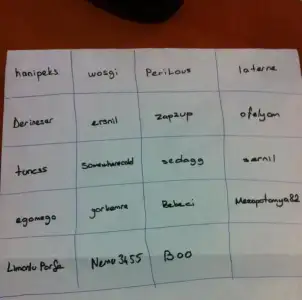 hanipeks wosgi PeriLous laterne
Derineser ersnil zapzup ofelyam
tuncss Somewherecold sedagg sernil
egomego yorhamra Bebeci Mezopotamya82
Limonlu Nemo3455 Boo